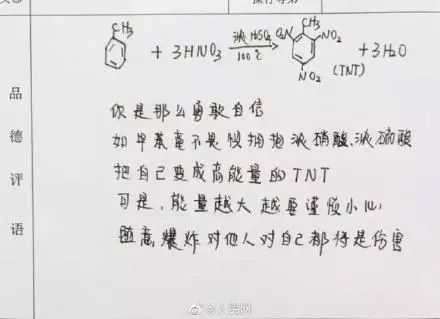 CH₃ + 3HNO₃ 浓H₂SO₄ 100℃ O₂N CH₃ NO₂ NO₂ (TNT) + 3H₂O
你是那么勇敢自信
如甲苯毫不畏惧拥抱浓硝酸、浓硫酸
把自己变成高能量的TNT
可是,能量越大越要谨慎小心
随意爆炸对他人对自己都将是伤害
品德评语
@人民网